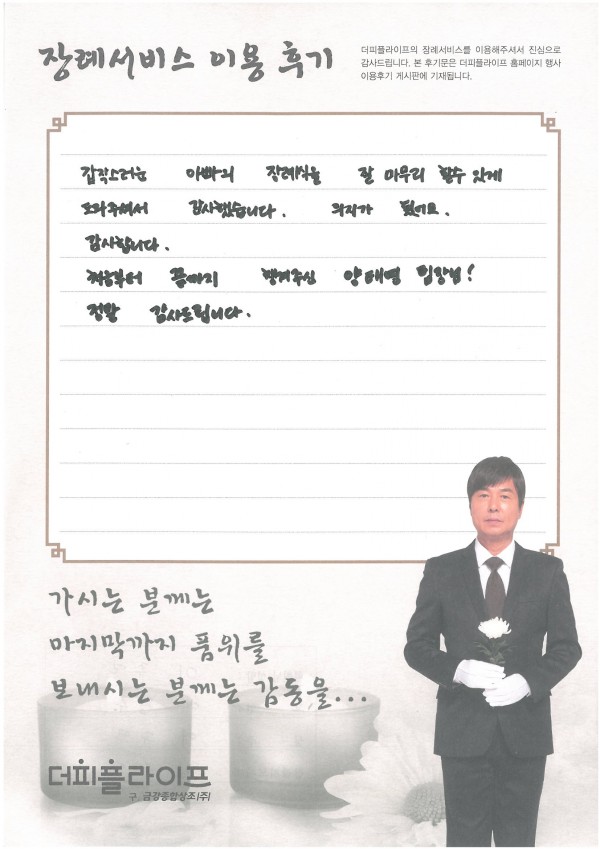 장례서비스 이용 후기
더피플라이프의 장례서비스를 이용해주셔서 진심으로
감사드립니다. 본 후기문은 더피플라이프 홈페이지 행사
이용후기 게시판에 기재됩니다.
갑작스러운 아빠의 장례식을 잘 마무리 할수 있게
도와주셔서 감사했습니다. 의지가 됬어요.
감사합니다.
처음부터 끝까지 챙겨주신 양태영 팀장님!
정말 감사드립니다.
가시는 분께는
마지막까지 품위를
보내시는 분께는 감동을...
더피플라이프
구. 금강종합상조(주)